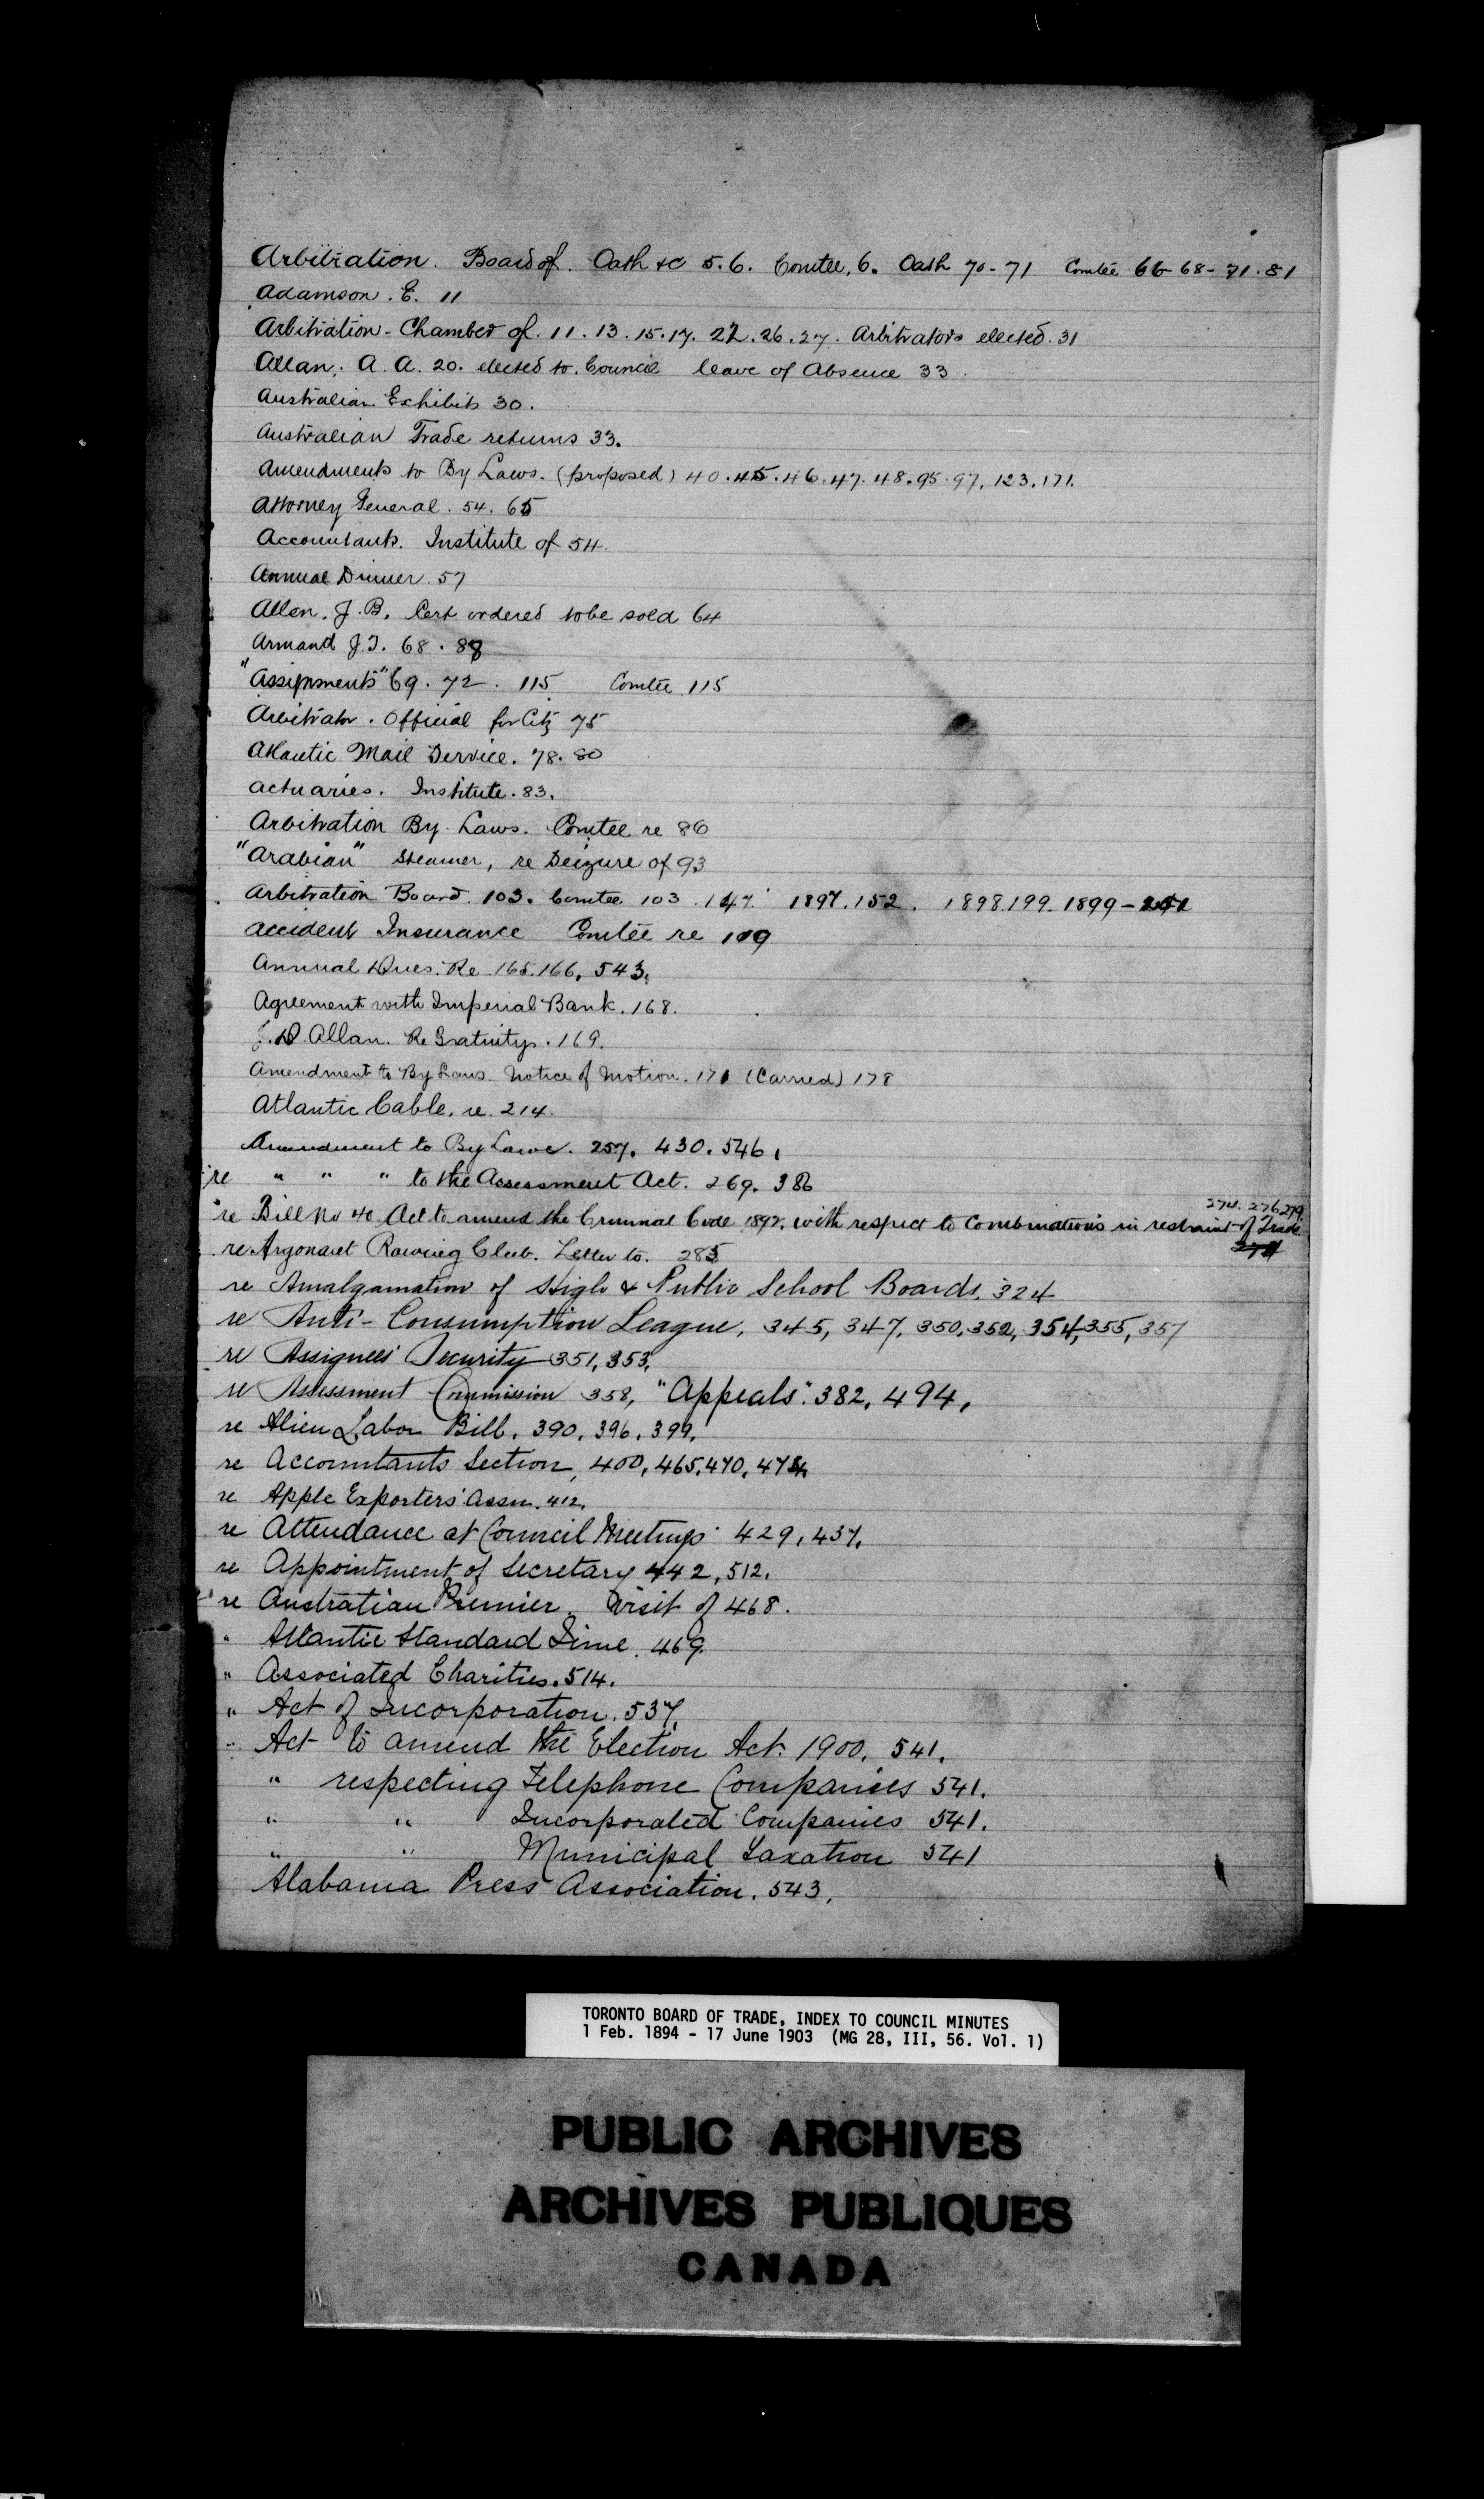 Arbitration. Board of. Oath &c 5.6. Comtee, 6. Oath 70-71 Comtee 66-68-71.81
Adamson. E. 11
Arbitration - Chamber of. 11.13.15.17. 22.26.27. Arbitrators elected. 31
Allan. A. A. 20. elected to Council leave of Absence 33.
Australian Exhibits 30.
Australian Trade returns 33.
Amendments to By Laws. (proposed) 40.45.46.47.48.95.97.123.171.
Attorney General. 54. 65
Accountants. Institute of 54.
Annual Dinner. 57
Allen. J. B. Cert ordered to be sold 64
Armand J. T. 68. 88
"Assignments" 69. 72. 115 Comtee 115
Arbitrator. Official for City 75
Atlantic Mail Service. 78. 80
Actuaries. Institute. 83.
Arbitration By-Laws. Comtee re 86
"Arabian" Steamer, re Seizure of 93
Arbitration Board. 103. Comtee 103. 147. 1897. 152. 1898.199. 1899 -
Accident Insurance Comtee re 109
Annual Dues. Re 165.166, 543.
Agreement with Imperial Bank. 168.
J. D. Allan. Re Gratuity. 169.
Amendment to By Laws. Notice of Motion. 171 (Carried) 178
Atlantic Cable. re. 214.
Amendment to By Laws. 257. 430. 546.
re " " " to the Assessment Act. 269. 386
274. 276 279
"re Bill No 40 Act to amend the Criminal Code 1892. with respect to Combinations in restraint of Trade
re Argonaut Rowing Club. Letter to. 285
re Amalgamation of High & Public School Boards, 324
re Anti-Consumption League, 345, 347, 350, 352, 354, 355, 357
re Assignees' Security 351, 353.
re Assessment Commission 358, "Appeals". 382, 494,
re Alien Labor Bill. 390, 396, 399.
re Accountants Section, 400, 465, 470, 474
re Apple Exporters' Assn. 412.
re Attendance at Council Meetings 429, 437.
re Appointment of Secretary 442, 512.
re Australian Premier. Visit of 468.
" Atlantic Standard Time. 469.
" Associated Charities. 514.
" Act of Incorporation. 537.
" Act to amend the Election Act. 1900. 541.
" respecting Telephone Companies 541.
" " Incorporated Companies 541.
" " Municipal Taxation 541
Alabama Press Association. 543.
TORONTO BOARD OF TRADE, INDEX TO COUNCIL MINUTES
1 Feb. 1894 - 17 June 1903 (MG 28, III, 56. Vol. 1)
PUBLIC ARCHIVES
ARCHIVES PUBLIQUES
CANADA